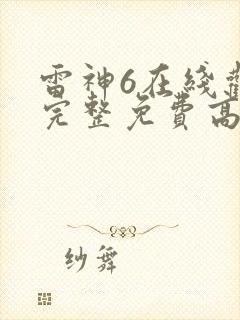 雷神6在綫觀
完整免費高
紗舞